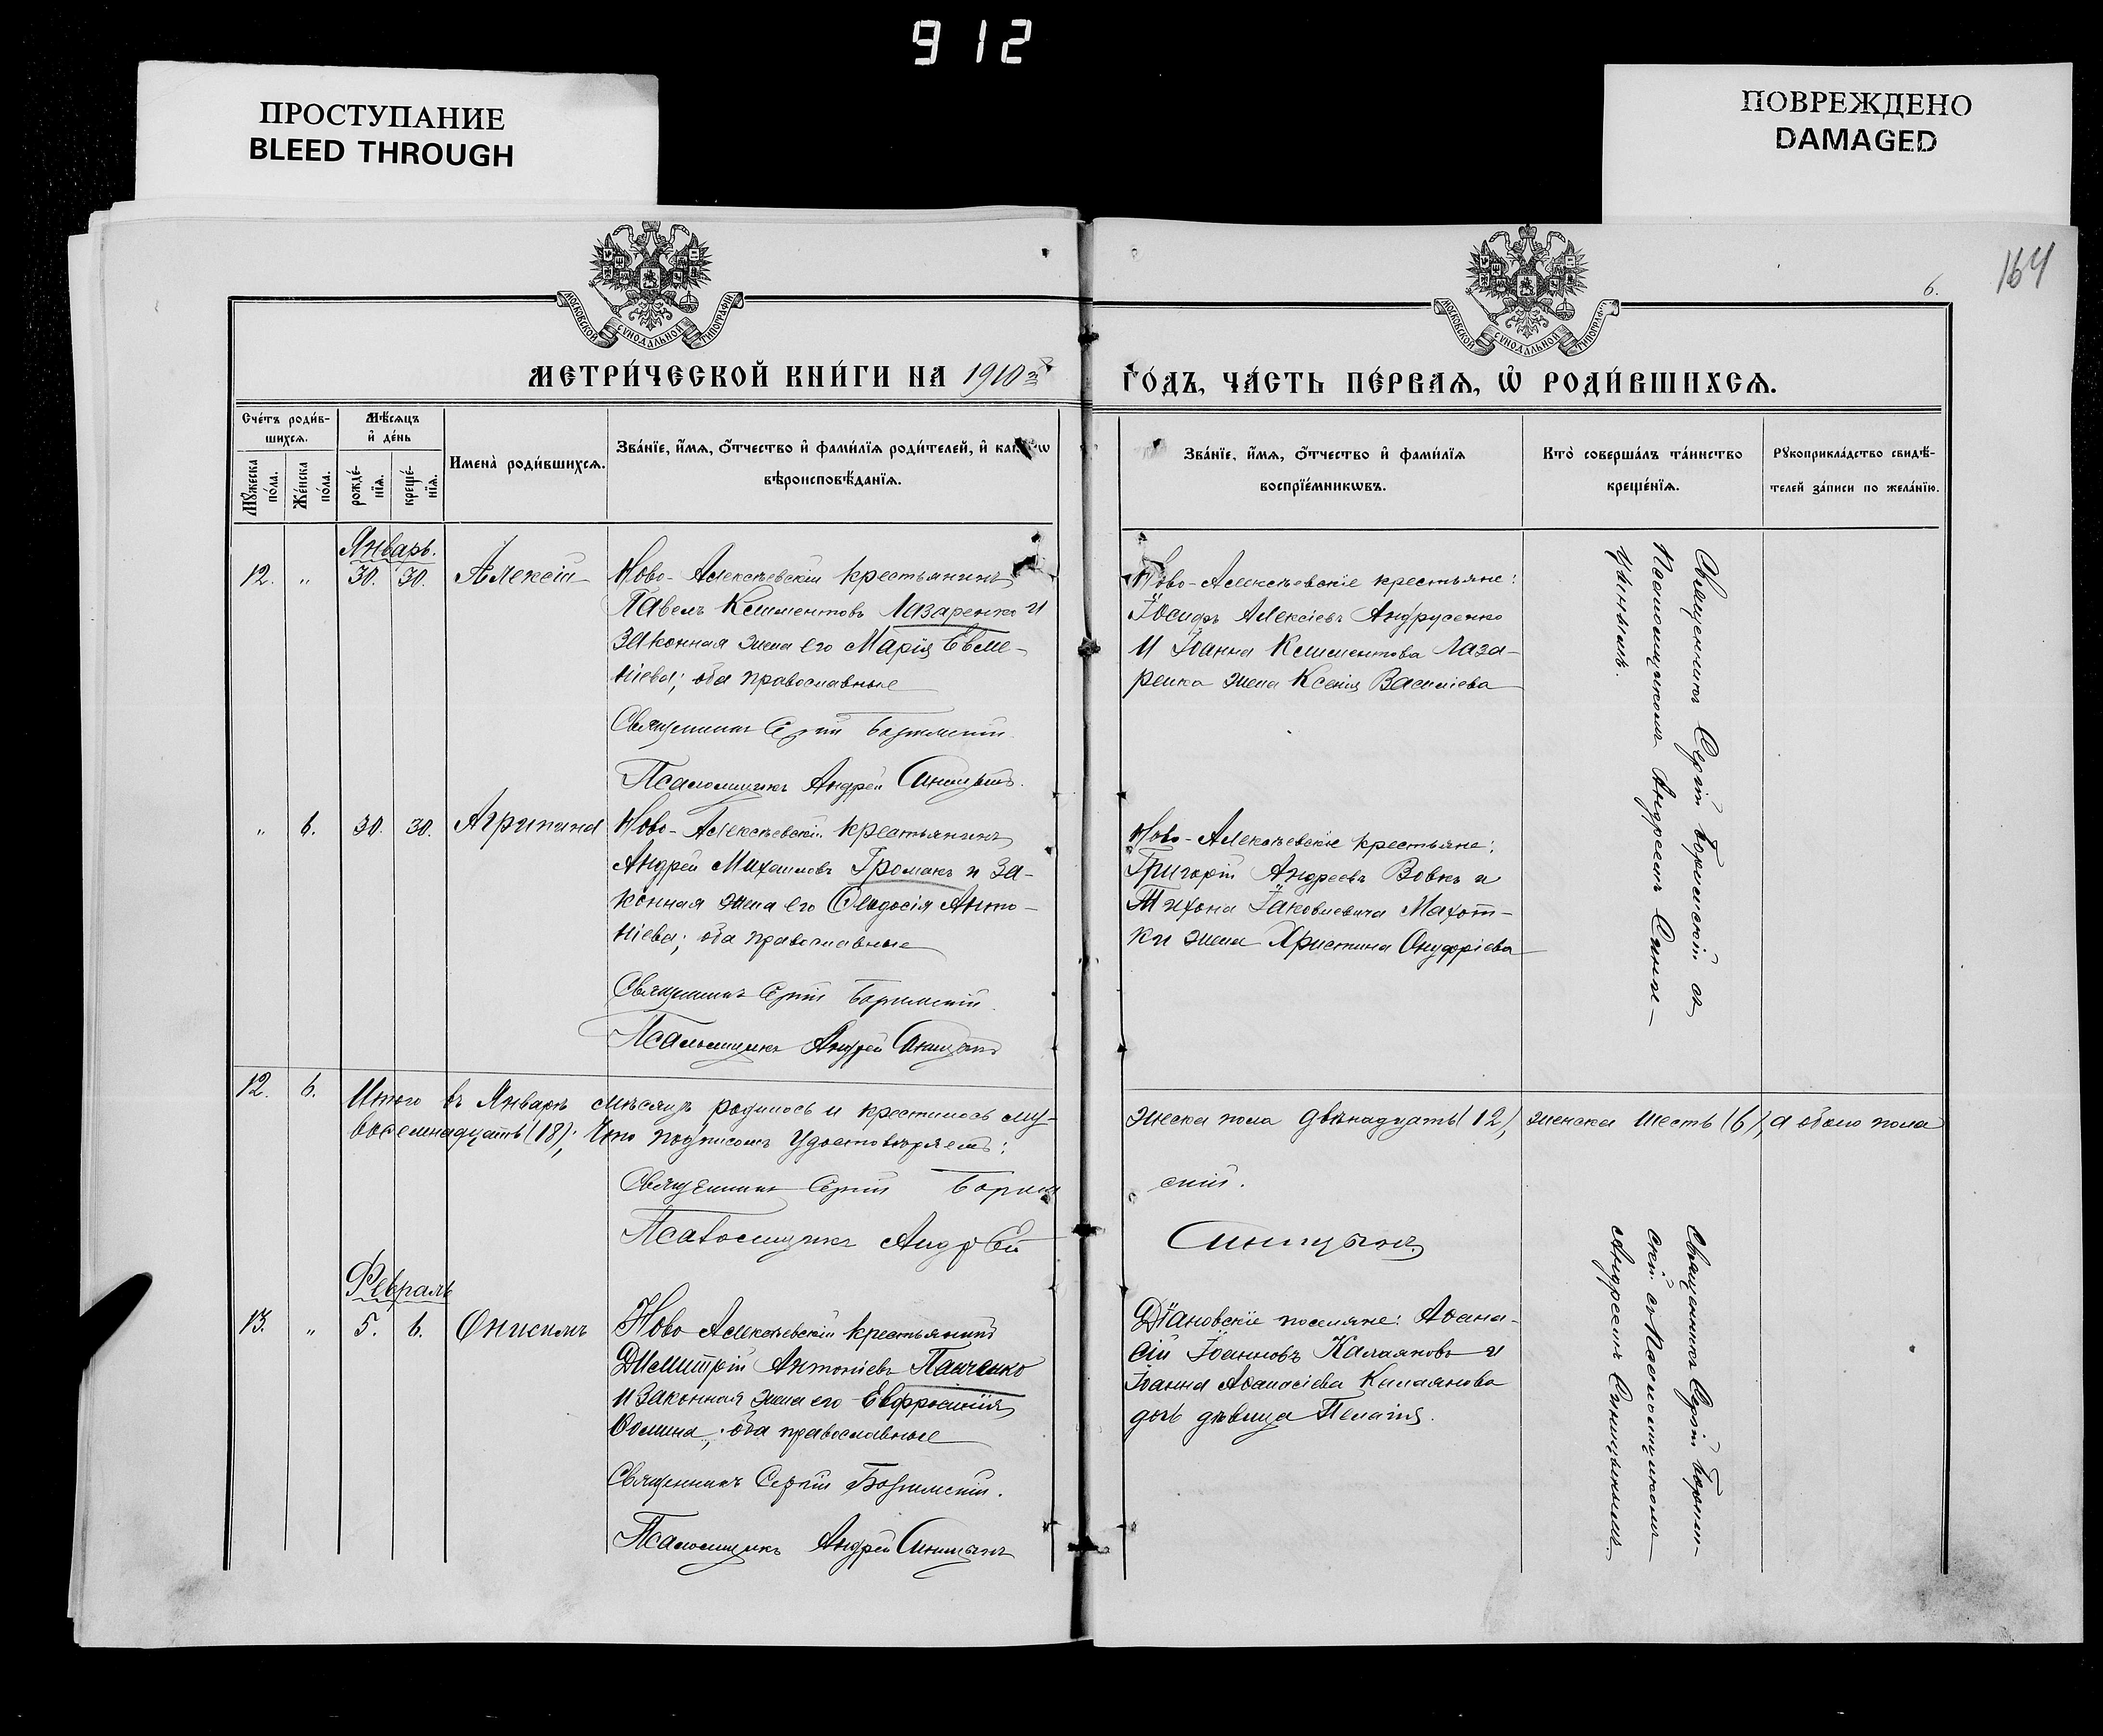 912
ПРОСТУПАНИЕ
BLEED THROUGH
ПОВРЕЖДЕНО
DAMAGED
164
6.
МОСКОВСКОЙ СѴНОДАЛЬНОЙ ТИПОГРАФІИ
МОСКОВСКОЙ СѴНОДАЛЬНОЙ ТИПОГРАФІИ
МЕТРИ́ЧЕСКОЙ КНИ́ГИ НА 1910й
ГО́ДЪ, ЧА́СТЬ ПЕ́РВАѦ, Ѡ҆ РОДИ́ВШИХСѦ.
Сче́тъ роди́в-
шихсѧ.
Мꙋ́жеска по́ла.
Же́нска по́ла.
Мѣ́сѧцъ
и҆ де́нь
рожде́-
нїѧ.
креще́-
нїѧ.
Имена̀ роди́вшихсѧ.
Зва́нїе, и҆́мѧ, ѻ҆́тчество и҆ фами́лїѧ роди́телей, и҆
вѣроисповѣ́данїѧ.
Зва́нїе, и҆́мѧ, ѻ҆́тчество и҆ фами́лїѧ
воспрїе́мникѡвъ.
Кто̀ соверша́лъ та́инство
креще́нїѧ.
Рꙋкоприкла́дство свидѣ́-
телей за́писи по жела́нїю.
Январь.
12. „ 30. 30. Алексій
Ново-Алексѣевскій крестьянинъ
Павелъ Климентовъ Лазаренко и
законная жена его Марія Евме-
ніева; оба православные
Священникъ Сергій Боримскій
Псаломщикъ Андрей Синицынъ.
Ново-Алексѣевскіе крестьяне:
Іосифъ Алексіевъ Андрусенко
и Іоанна Климентова Лаза-
ренка жена Ксенія Василіева
Священникъ Сергій Боримскій съ
Псаломщикомъ Андреемъ Сини-
цынымъ.
„ 6. 30. 30. Агрипина
Ново-Алексѣевскій крестьянинъ
Андрей Михаиловъ Громакъ и за-
конная жена его Ѳеодосія Анто-
ніева; оба православные
Священникъ Сергій Боримскій
Псаломщикъ Андрей Синицынъ
Ново-Алексѣевскіе крестьяне:
Григорій Андреевъ Вовкъ и
Тихона Іаковлевича Махот-
ки жена Христина Онуфріева
12. 6. Итого въ Январѣ мѣсяцѣ родилось и крестилось му-
жеска пола двѣнадцать (12), женска шесть (6), а обоего пола
восемнадцать (18); что подписомъ удостовѣряемъ:
Священникъ Сергій Борим
скій.
Псаломщикъ Андрей
Синицынъ
Февраль
13. „ 5. 6. Онисимъ
Ново Алексѣевскій крестьянинъ
Димитрій Антоніевъ Панченко
и законная жена его Евфросинія
Ѳомина; оба православные
Священникъ Сергій Боримскій.
Псаломщикъ Андрей Синицынъ
Діановскіе поселяне: Аѳана-
сій Іоанновъ Калаяновъ и
Іоанна Аѳанасіева Калаянова
дочь дѣвица Пелагія.
Священникъ Сергій Борим-
скій съ Псаломщикомъ
Андреемъ Синицынымъ.